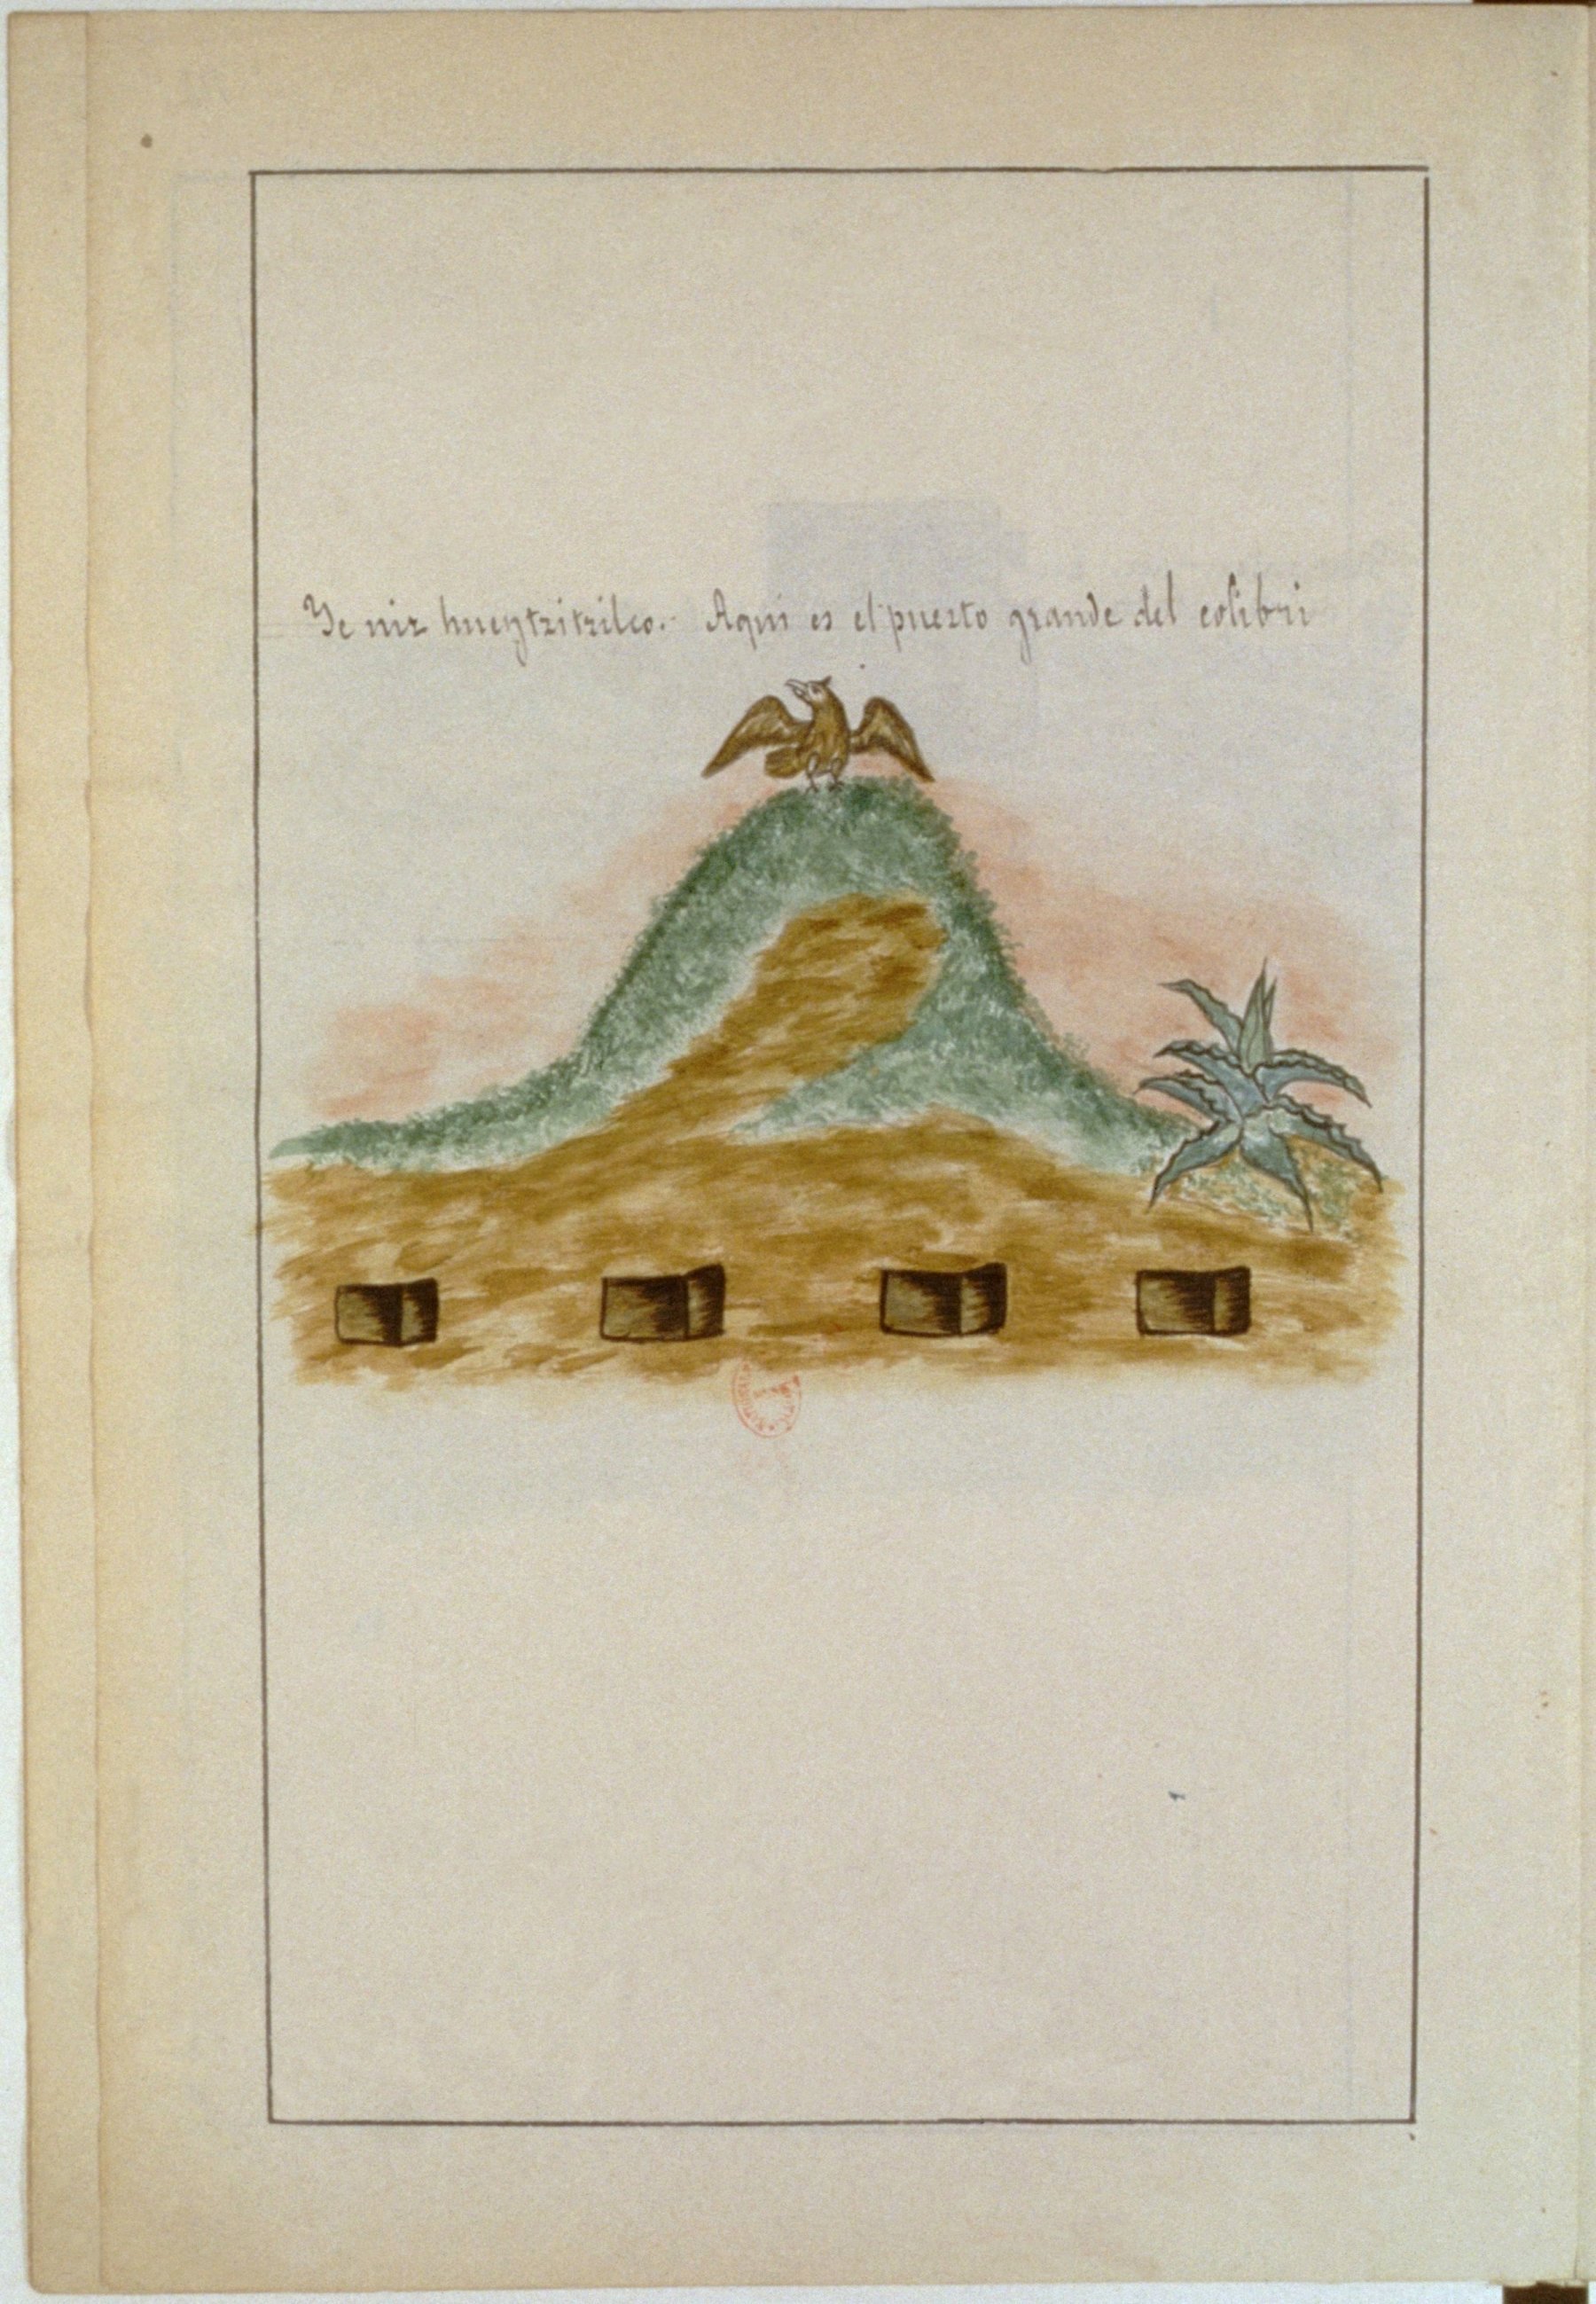 Ye niz hueytzitzilco.- Aqui es el puerto grande del colibri